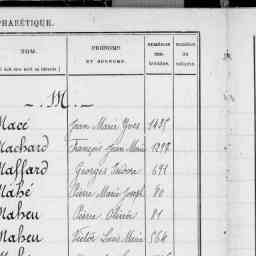 PHABÉTIQUE.
NOM. PRÉNOMS ET SURNOMS. NUMÉROS
— M. —
Macé Jean Marie Yves 1485
Machard François Jean Marie 1298
Maffard Georges Isidore 691
Mahé Pierre Marie Joseph 80
Maheu Pierre Olivier 81
Maheu Victor Louis Marie 564